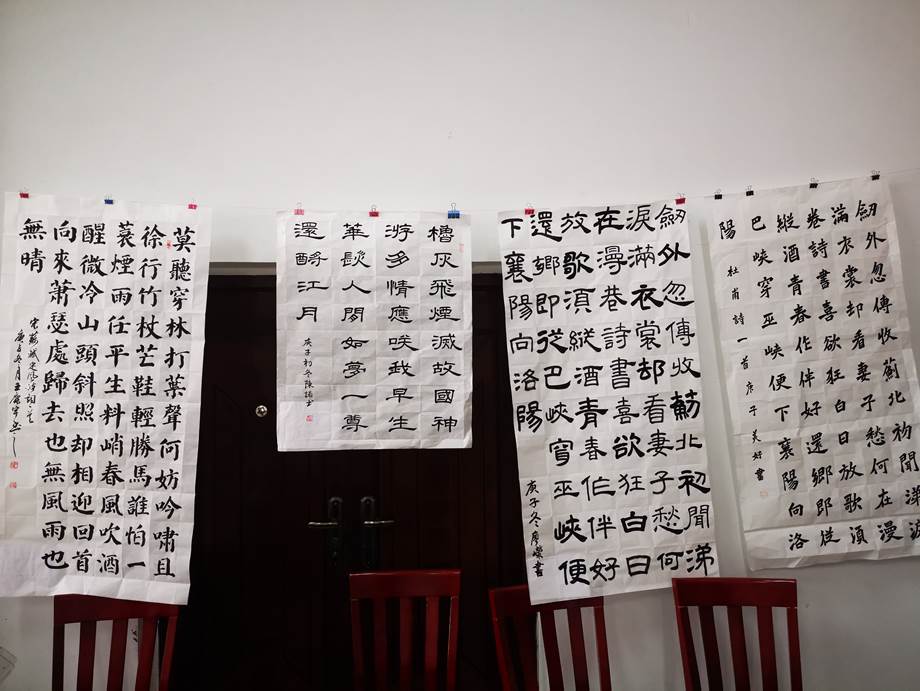 莫聽穿林打葉聲何妨吟嘯且
徐行竹杖芒鞋輕勝馬誰怕一
蓑煙雨任平生料峭春風吹酒
醒微冷山頭斜照却相迎回首
向來蕭瑟處歸去也無風雨也
無晴
宋蘇軾定風波詞一首
庚子冬月王
櫓灰飛煙滅故國神
游多情應咲我早生
華髮人間如夢一尊
還酹江月
庚子初冬陳
劒外忽傳收薊北初聞涕
淚滿衣裳却看妻子愁何
在漫卷詩書喜欲狂白日
放歌須縱酒青春作伴好
還鄉即從巴峽穿巫峽便
下襄陽向洛陽
庚子冬廖榮書
劍外忽傳收薊北初聞涕淚
滿衣裳却看妻子愁何在漫
卷詩書喜欲狂白日放歌須
縱酒青春作伴好還鄉即從
巴峽穿巫峽便下襄陽向洛
陽
杜甫詩一首庚子美好書